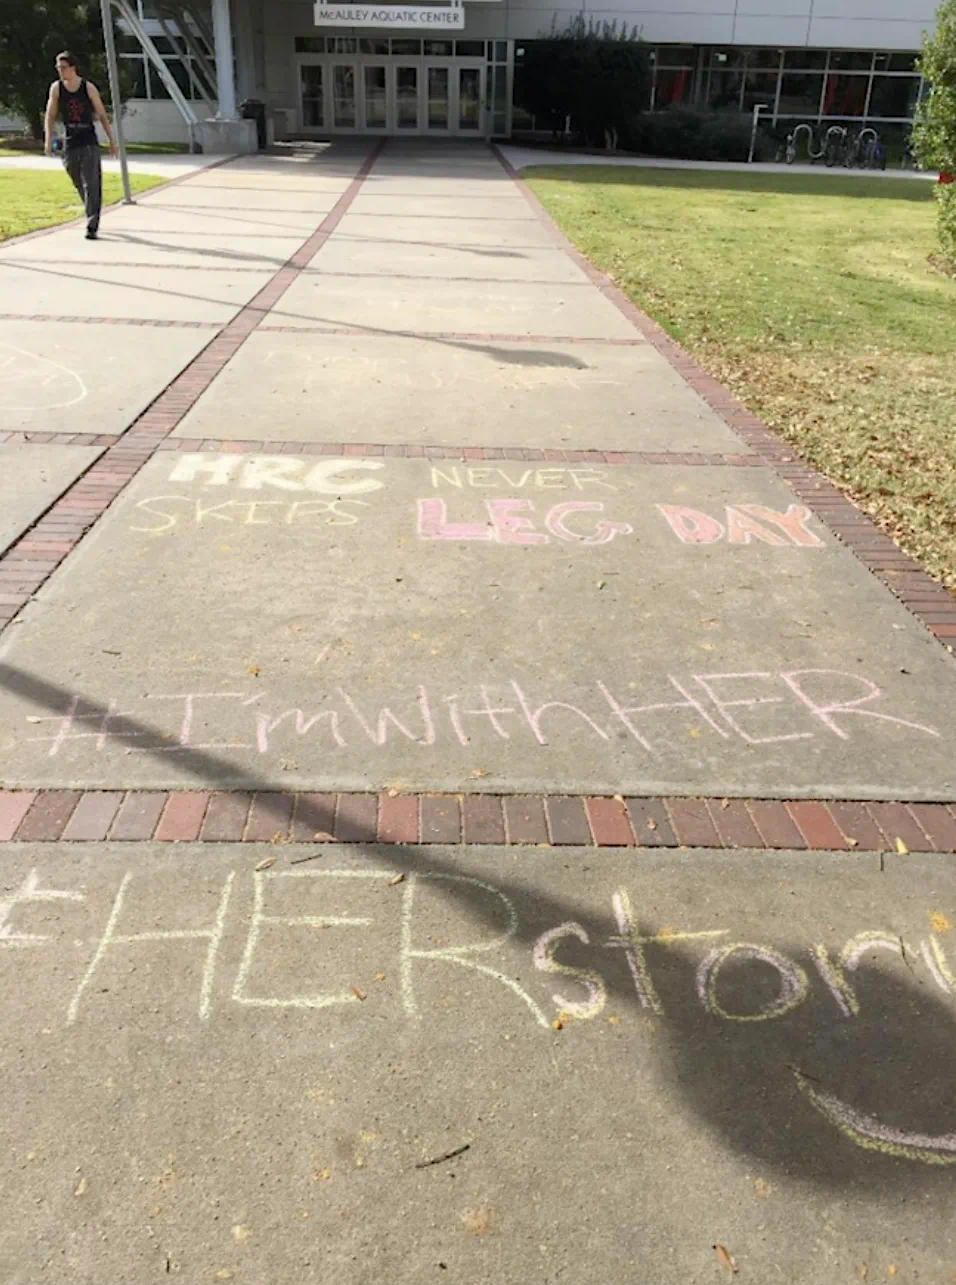 McAULEY AQUATIC CENTER
HRC NEVER
SKIPS LEG DAY
#I'mWithHER
#HERstory